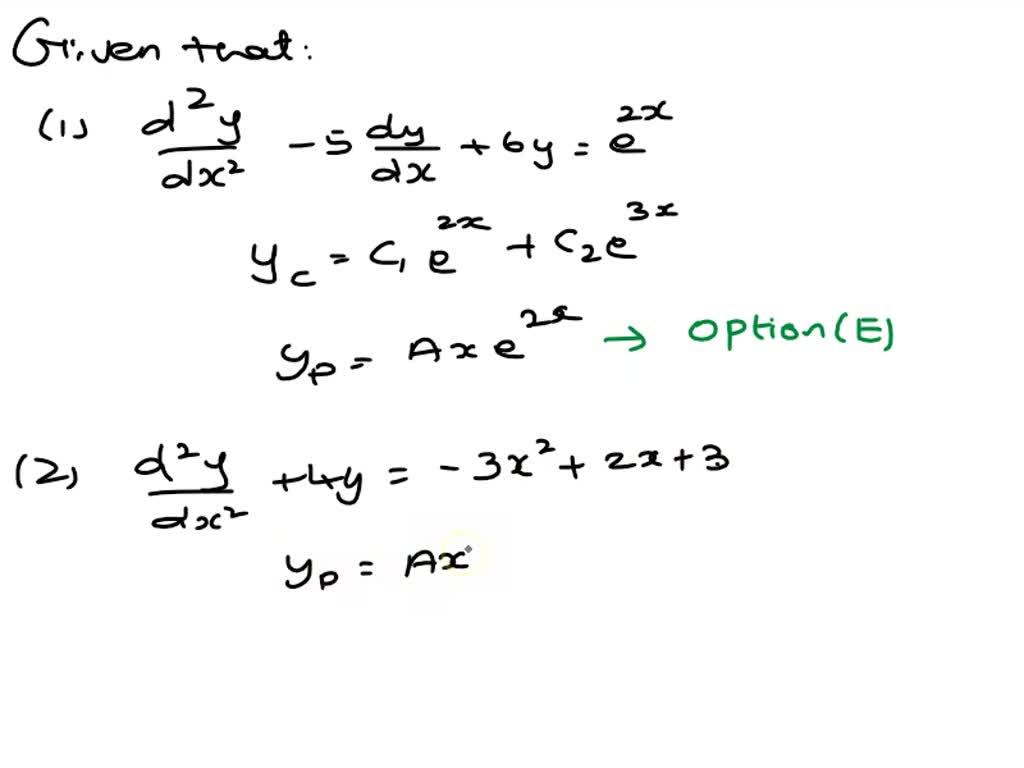 Given that:
(1) d²y/dx² - 5 dy/dx + 6y = e^2x
y_c = C₁ e^2x + C₂ e^3x
y_p = A x e^2x → Option(E)
(2) d²y/dx² + 4y = -3x² + 2x + 3
y_p = Ax